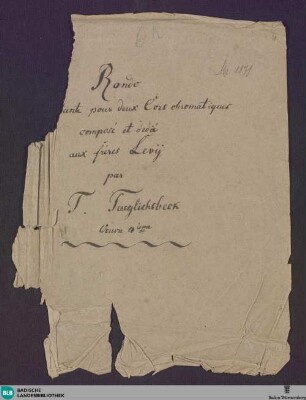 Rondo
ante pour deux Cors chromatiques
composé et dédié
aux frères Levÿ
par
T. Taeglichsbeck
Oeuvre
BLB
BADISCHE
LANDESBIBLIOTHEK
Baden-Württemberg